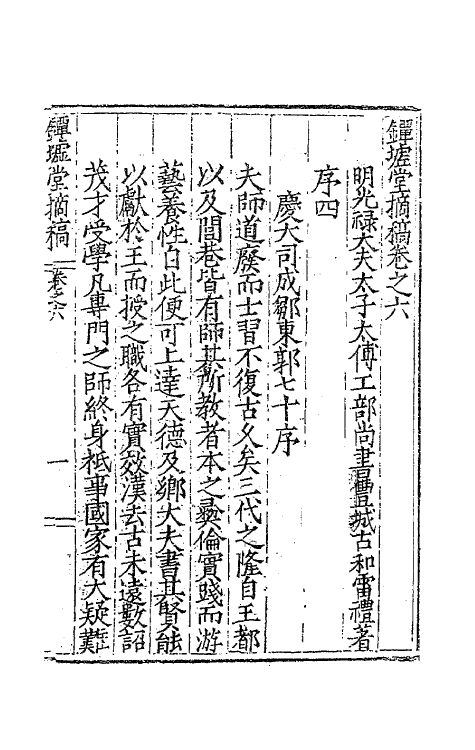 鐔墟堂摘稿卷之六
明光祿大夫太子太傅工部尚書豐城古和雷禮著
序四
慶大司成鄒東郭七十序
夫師道廢而士習不復古久矣三代之隆自王都
以及閭巷皆有師其所教者本之彜倫實踐而游
藝養性自此便可上達天德及鄉大夫書其賢能
以獻於王而授之職各有實效漢去古未遠數詔
茂才受學凡專門之師終身祗事國家有大疑難
鐔墟堂摘稿 卷之六 一